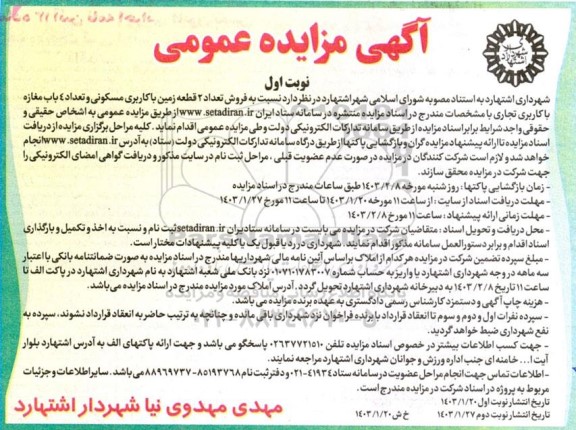 آگهی مزایده عمومی
نوبت اول
شهرداری اشتهارد به استناد مصوبه شورای اسلامی شهر اشتهارد در نظر دارد نسبت به فروش تعداد ۲ قطعه زمین با کاربری مسکونی و تعداد ٤ باب مغازه
با کاربری تجاری با مشخصات مندرج در اسناد مزایده منتشره در سامانه ستاد ایران www.setadiran.ir از طریق مزایده عمومی به اشخاص حقیقی و
حقوقی واجد شرایط برابر اسناد مزایده از طریق سامانه تدارکات الکترونیکی دولت وطی مزایده عمومی اقدام نماید . کلیه مراحل برگزاری مزایده از دریافت
اسناد مزایده تا ارائه پیشنهاد مزایده گران و بازگشایی پاکتها از طریق درگاه سامانه تدارکات الکترونیکی دولت (ستاد) به آدرس www.setadiran.ir انجام
خواهد شد و لازم است شرکت کنندگان در مزایده در صورت عدم عضویت قبلی ، مراحل ثبت نام در سایت مذکور و دریافت گواهی امضای الکترونیکی را
جهت شرکت در مزایده محقق سازند.
- زمان بازگشایی پاکتها: روز شنبه مورخه ۱۴۰۳/۲/۸ طبق ساعات مندرج در اسناد مزایده
- مهلت دریافت اسناد از سایت : از ساعت ۱۱ مورخه ۱۴۰۳/۱/۲۰ تا ساعت ۱۱ مورخ ۱۴۰۳/۱/۲۷
- مهلت زمانی ارائه پیشنهاد : ساعت ۱۱ مورخ ۱۴۰۳/۲/۸
- محل دریافت و تحویل اسناد : متقاضیان شرکت در مزایده می بایست در سامانه ستاد ایران setadiran.ir ثبت نام و نسبت به اخذ و تکمیل و بارگذاری
اسناد اقدام و برابر دستورالعمل سامانه مذکور اقدام نمایند. شهرداری در رد یا قبول یک یا کلیه پیشنهادات مختار است.
- مبلغ سپرده تضمین شرکت در مزایده هر کدام از املاک براساس آئین نامه مالی شهرداریها مندرج در اسناد مزایده به صورت ضمانتنامه بانکی با اعتبار
سه ماهه در وجه شهرداری اشتهارد یا واریز به حساب شماره ۰۱۰۷۱۰۱۷۸۳۰۰۷ نزد بانک ملی شعبه اشتهارد به نام شهرداری اشتهارد در پاکت الف تا
ساعت ۱۱ تاریخ ۱۴۰۳/۲/۸ به دبیرخانه شهرداری اشتهارد تحویل گردد . آدرس املاک مورد مزایده مندرج در اسناد مزایده می باشد.
- هزینه چاپ آگهی و دستمزد کارشناس رسمی دادگستری به عهده برنده مزایده می باشد.
- سپرده نفرات اول و دوم و سوم تا انعقاد قرارداد با برنده فراخوان نزد شهرداری باقی مانده و چنانچه به ترتیب حاضر به انعقاد قرارداد نشوند، سپرده به
نفع شهرداری ضبط خواهد گردید.
- جهت کسب اطلاعات بیشتر در خصوص اسناد مزایده تلفن ۰۲۶۳۷۷۲۱۵۱۰ پاسخگو می باشد و جهت ارائه پاکتهای الف به آدرس اشتهارد بلوار
آیت ا... خامنه ای جنب اداره ورزش و جوانان شهرداری اشتهارد مراجعه نمایند.
- اطلاعات تماس جهت انجام مراحل عضویت در سامانه ستاد ۴۱۹۳۴-۰۲۱ و دفتر ثبت نام ۸۵۱۹۳۷۶۸-۸۸۹۶۹۷۳۷ می باشد . سایر اطلاعات و جزئیات
مربوط به پروژه در اسناد شرکت در مزایده مندرج است.
تاریخ انتشار نوبت اول ۱۴۰۳/۱/۲۰
تاریخ انتشار نوبت دوم ۱۴۰۳/۱/۲۷ خ ش ۱۴۰۳/۱/۲۰
مهدی مهدوی نیا شهردار اشتهارد